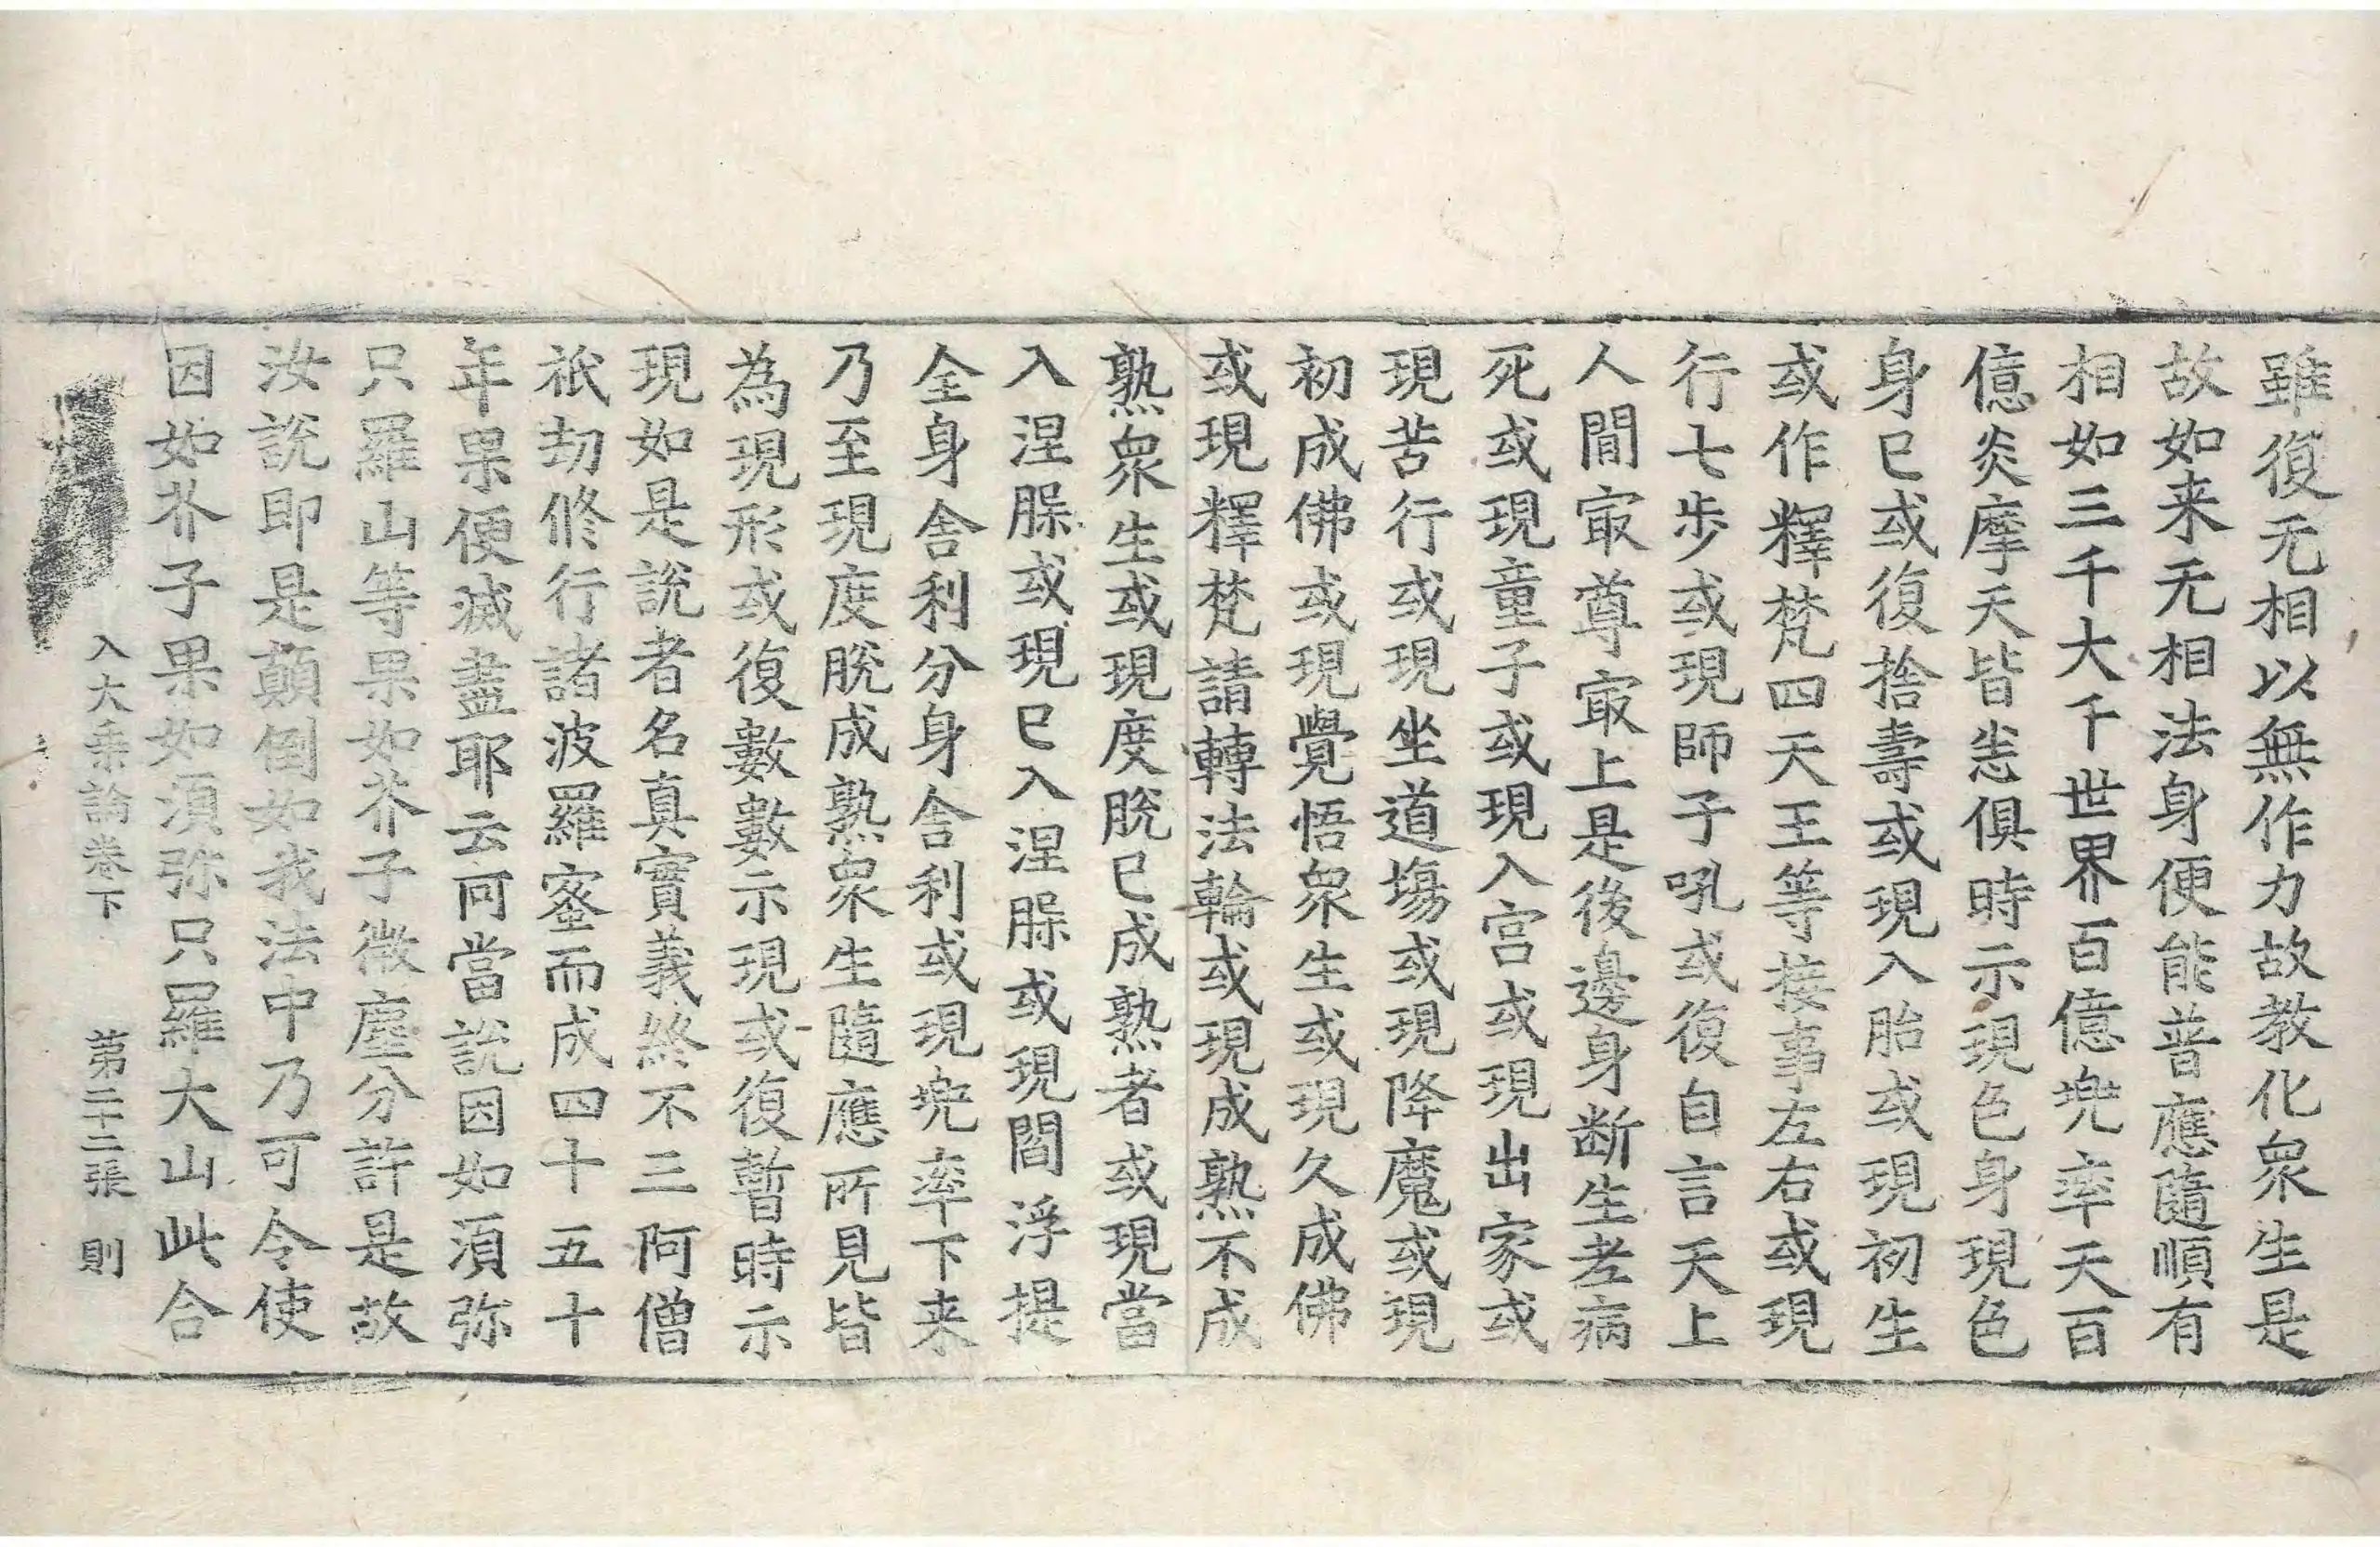 雖復无相以無作力故教化衆生是
故如来无相法身便能普應隨順有
相如三千大千世界百億兠率天百
億炎摩天皆恙俱時示現色身現色
身已或復捨壽或現入胎或現初生
或作釋梵四天王等接事左右或現
行七步或現師子吼或復自言天上
人間㝡尊㝡上是後邊身断生老病
死或現童子或現入宫或現出家或
現苦行或現坐道場或現降魔或現
初成佛或現覺悟衆生或現久成佛
或現釋梵請轉法輪或現成熟不成
熟衆生或現度脫已成熟者或現當
入涅槃或現已入涅槃或現閻浮提
全身舍利分身舍利或現兠率下来
乃至現度脫成熟衆生隨應所見皆
為現形或復數數示現或復暫時示
現如是說者名真實義終不三阿僧
祇劫修行諸波羅蜜而成四十五十
年果便滅盡耶云何當說因如湏弥
只羅山等果如芥子微塵分許是故
汝說即是顛倒如我法中乃可令使
因如芥子果如湏弥只羅大山此合
入大乗論卷下 第二十二張 則